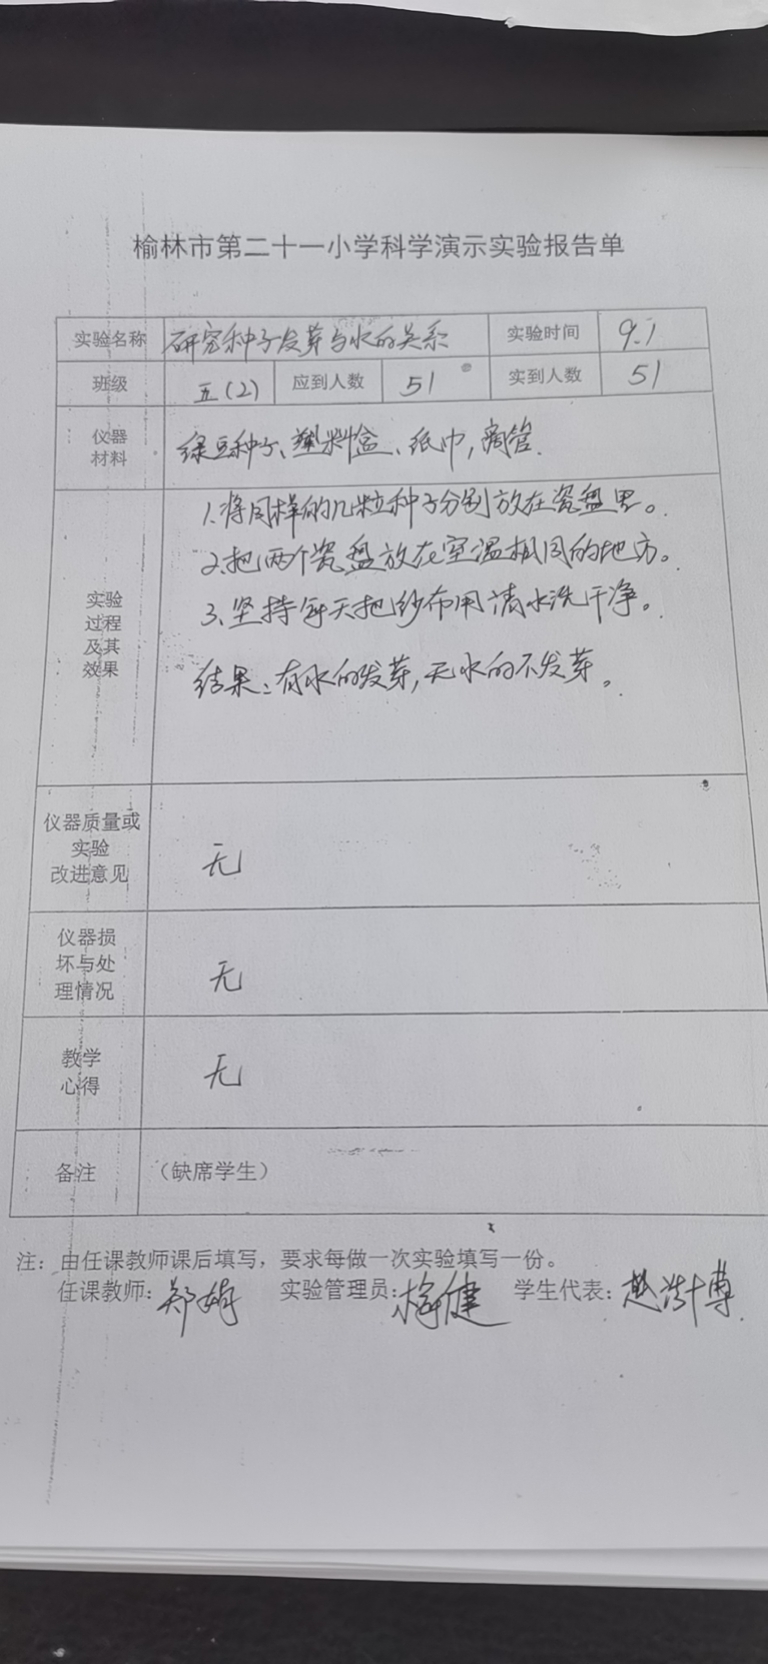 榆林市第二十一小学科学演示实验报告单
实验名称 研究种子发芽与水的关系 实验时间 9.1
班级 五(2) 应到人数 51 实到人数 51
仪器
材料
绿豆种子、塑料盒、纸巾,滴管.
实验
过程
及其
效果
1.将同样的几粒种子分别放在瓷盘里。
2.把两个瓷盘放在室温相同的地方。
3.坚持每天把纱布用清水洗干净。
结果:有水的发芽,无水的不发芽。
仪器质量或
实验
改进意见
无
仪器损
坏与处
理情况
无
教学
心得
无
备注 (缺席学生)
注:由任课教师课后填写,要求每做一次实验填写一份。
任课教师:郑娟 实验管理员: 健 学生代表: 浩博